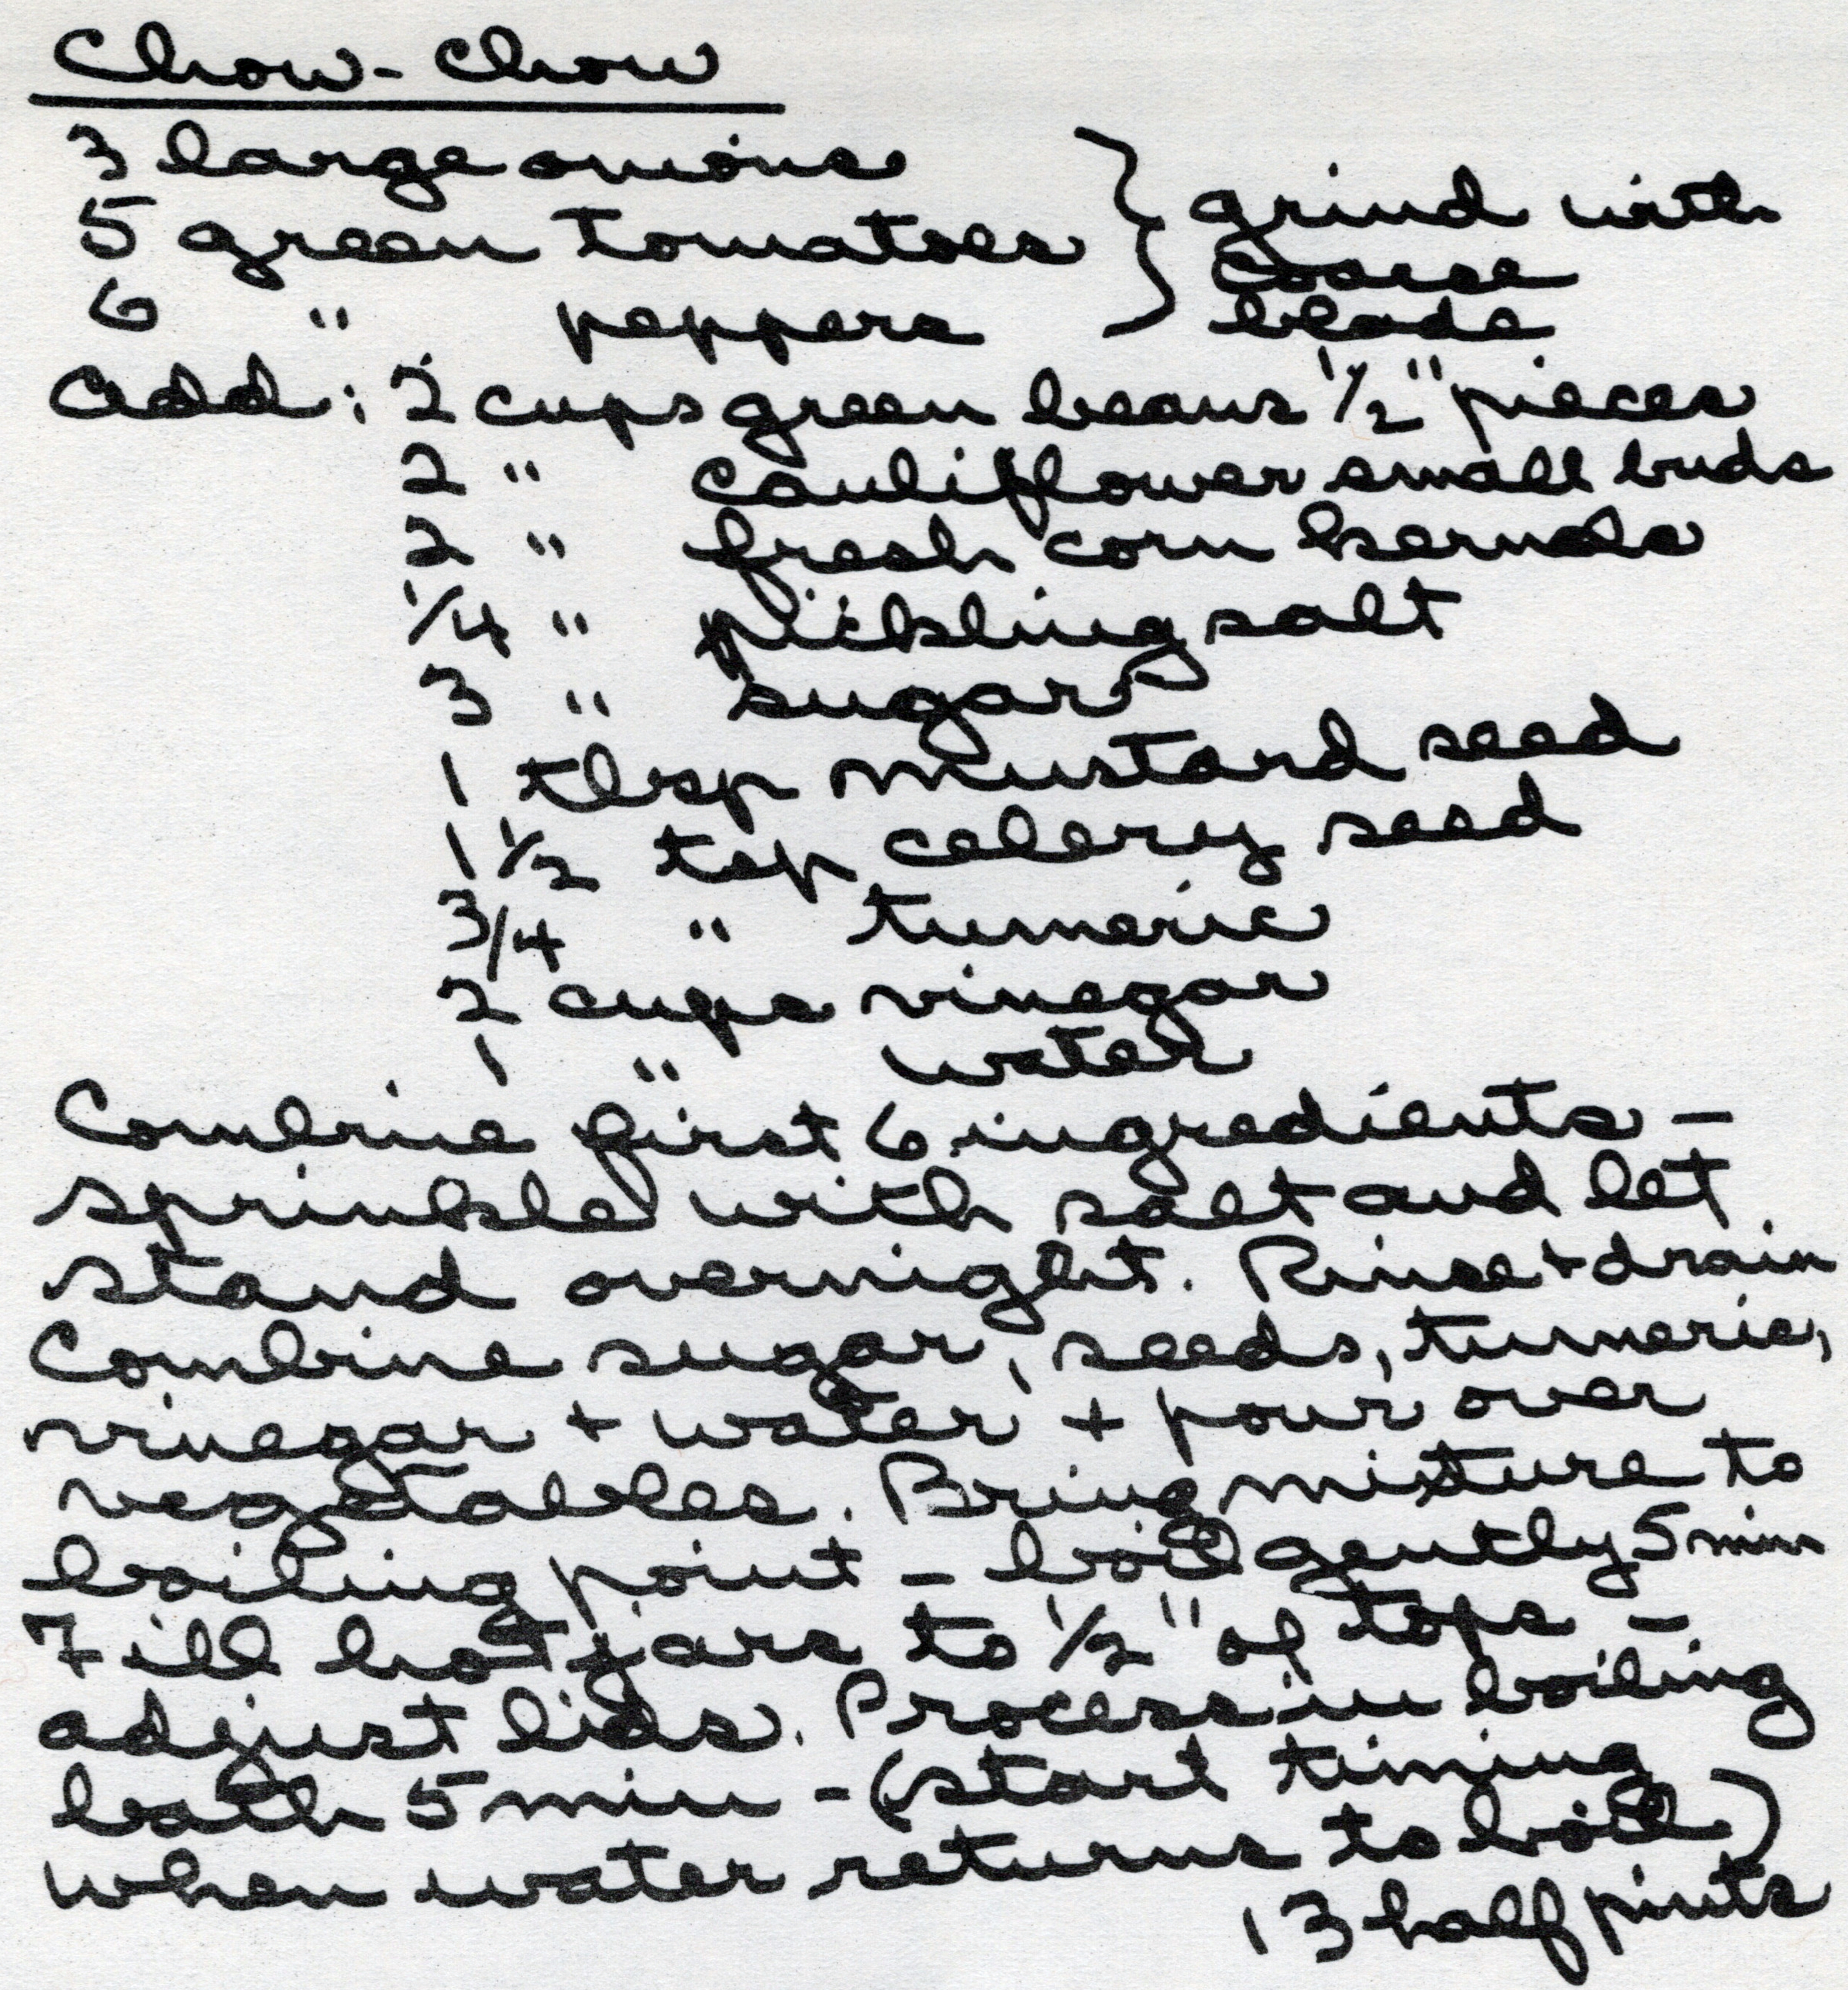 Chow-Chow
3 large onions
5 green tomatoes
6 " peppers
} grind with
coarse
blade
Add: 2 cups green beans 1/2" pieces
2 " cauliflower small buds
2 " fresh corn kernels
1/4 " pickling salt
3 " sugar
1 tbsp mustard seed
1 1/2 tsp celery seed
3/4 " tumeric
2 cups vinegar
1 " water
Combine first 6 ingredients -
sprinkle with salt and let
stand overnight. Rinse + drain
Combine sugar, seeds, tumeric,
vinegar + water + pour over
vegetables. Bring mixture to
boiling point - boil gently 5 min
Fill hot jars to 1/2" of tops -
adjust lids. Process in boiling
bath 5 min - (start timing
when water returns to boil)
13 half pints